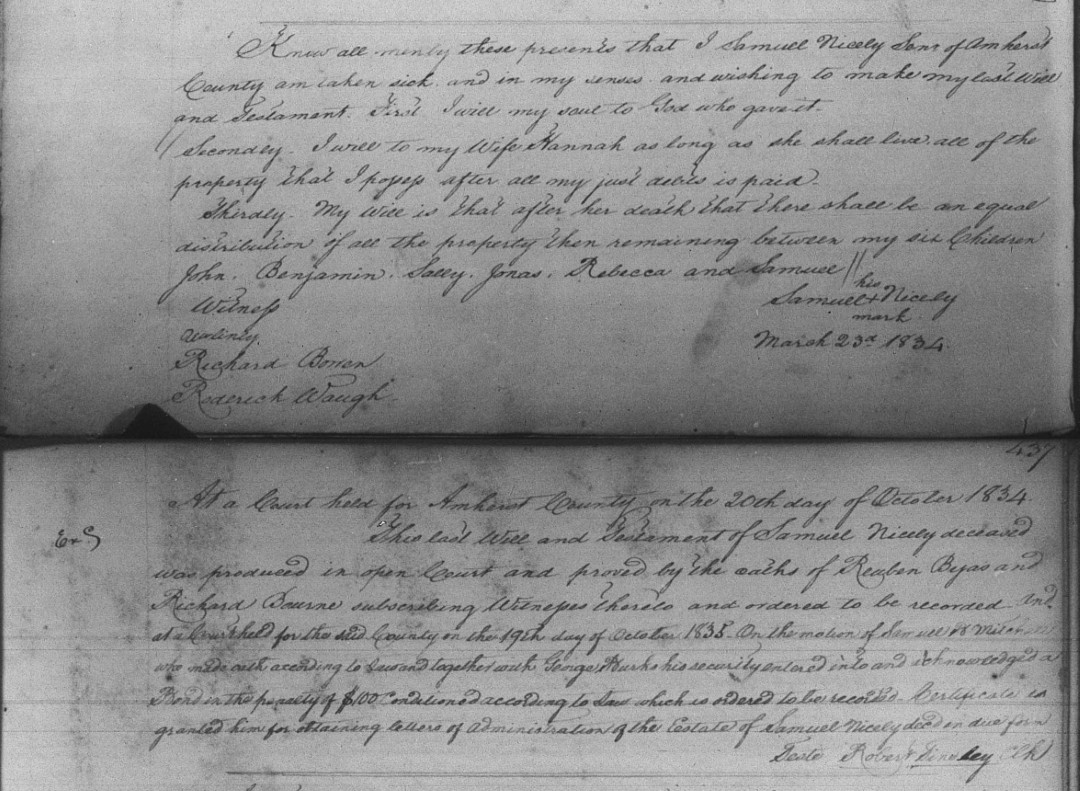 Know all men by these presents that I Samuel Nicely Senr of Amherst
County am taken sick and in my senses and wishing to make my last Will
and Testament. First I will my soul to God who gave it.
Secondly. I will to my Wife Hannah as long as she shall live all of the
property that I possess after all my just debts is paid.
Thirdly. My will is that after her death that there shall be an equal
distribution of all the property then remaining between my six Children
John. Benjamin. Sally. Jonas. Rebecca and Samuel
his
Witness Samuel + Nicely
mark
Richard Bowen March 23d 1834.
Roderick Waugh
437
At a Court held for Amherst County on the 20th day of October 1834
This last Will and Testament of Samuel Nicely deceased
was produced in open Court and proved by the oaths of Reuben and
Richard Bourne subscribing Witnesses thereto and ordered to be recorded. And
at a Court held for the said County on the 19th day of October 1835. On the motion of Samuel
who made oath according to Law and together with George Burks his security entered into and acknowledged a
Bond in the penalty of $100 Conditioned according to Law which is ordered to be recorded. Certificate is
granted him for obtaining letters of Administration of the Estate of Samuel Nicely decd in due form
Teste Robert Tinsley Clk